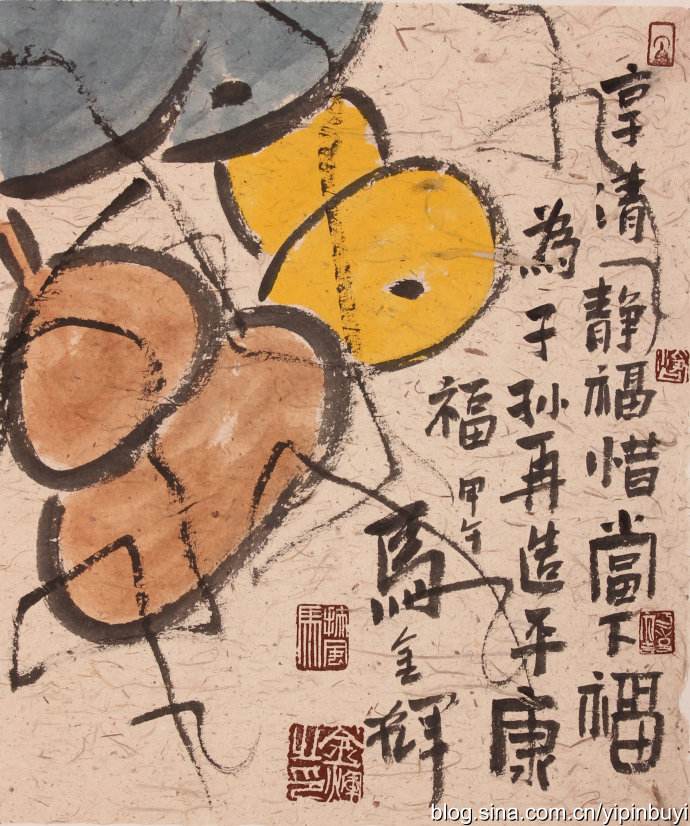 享清静福惜當下福
為子孙再造平康
福 甲午
馬金輝
金輝之印
blog.sina.com.cn/yipinbuyi